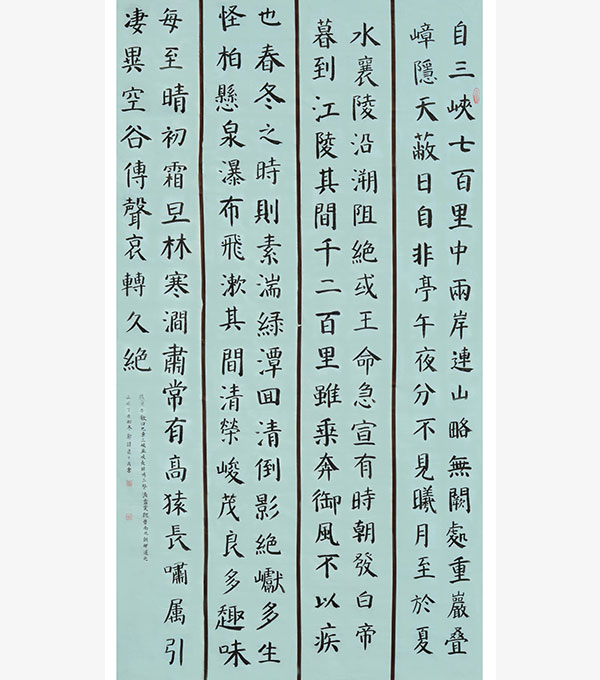 自三峽七百里中兩岸連山略無闕處重巖叠
嶂隱天蔽日自非亭午夜分不見曦月至於夏
水襄陵沿溯阻絶或王命急宣有時朝發白帝
暮到江陵其間千二百里雖乘奔御風不以疾
也春冬之時則素湍緑潭回清倒影絶巘多生
怪柏懸泉瀑布飛漱其間清榮峻茂良多趣味
每至晴初霜旦林寒澗肅常有高猿長嘯属引
凄異空谷傳聲哀轉久絶